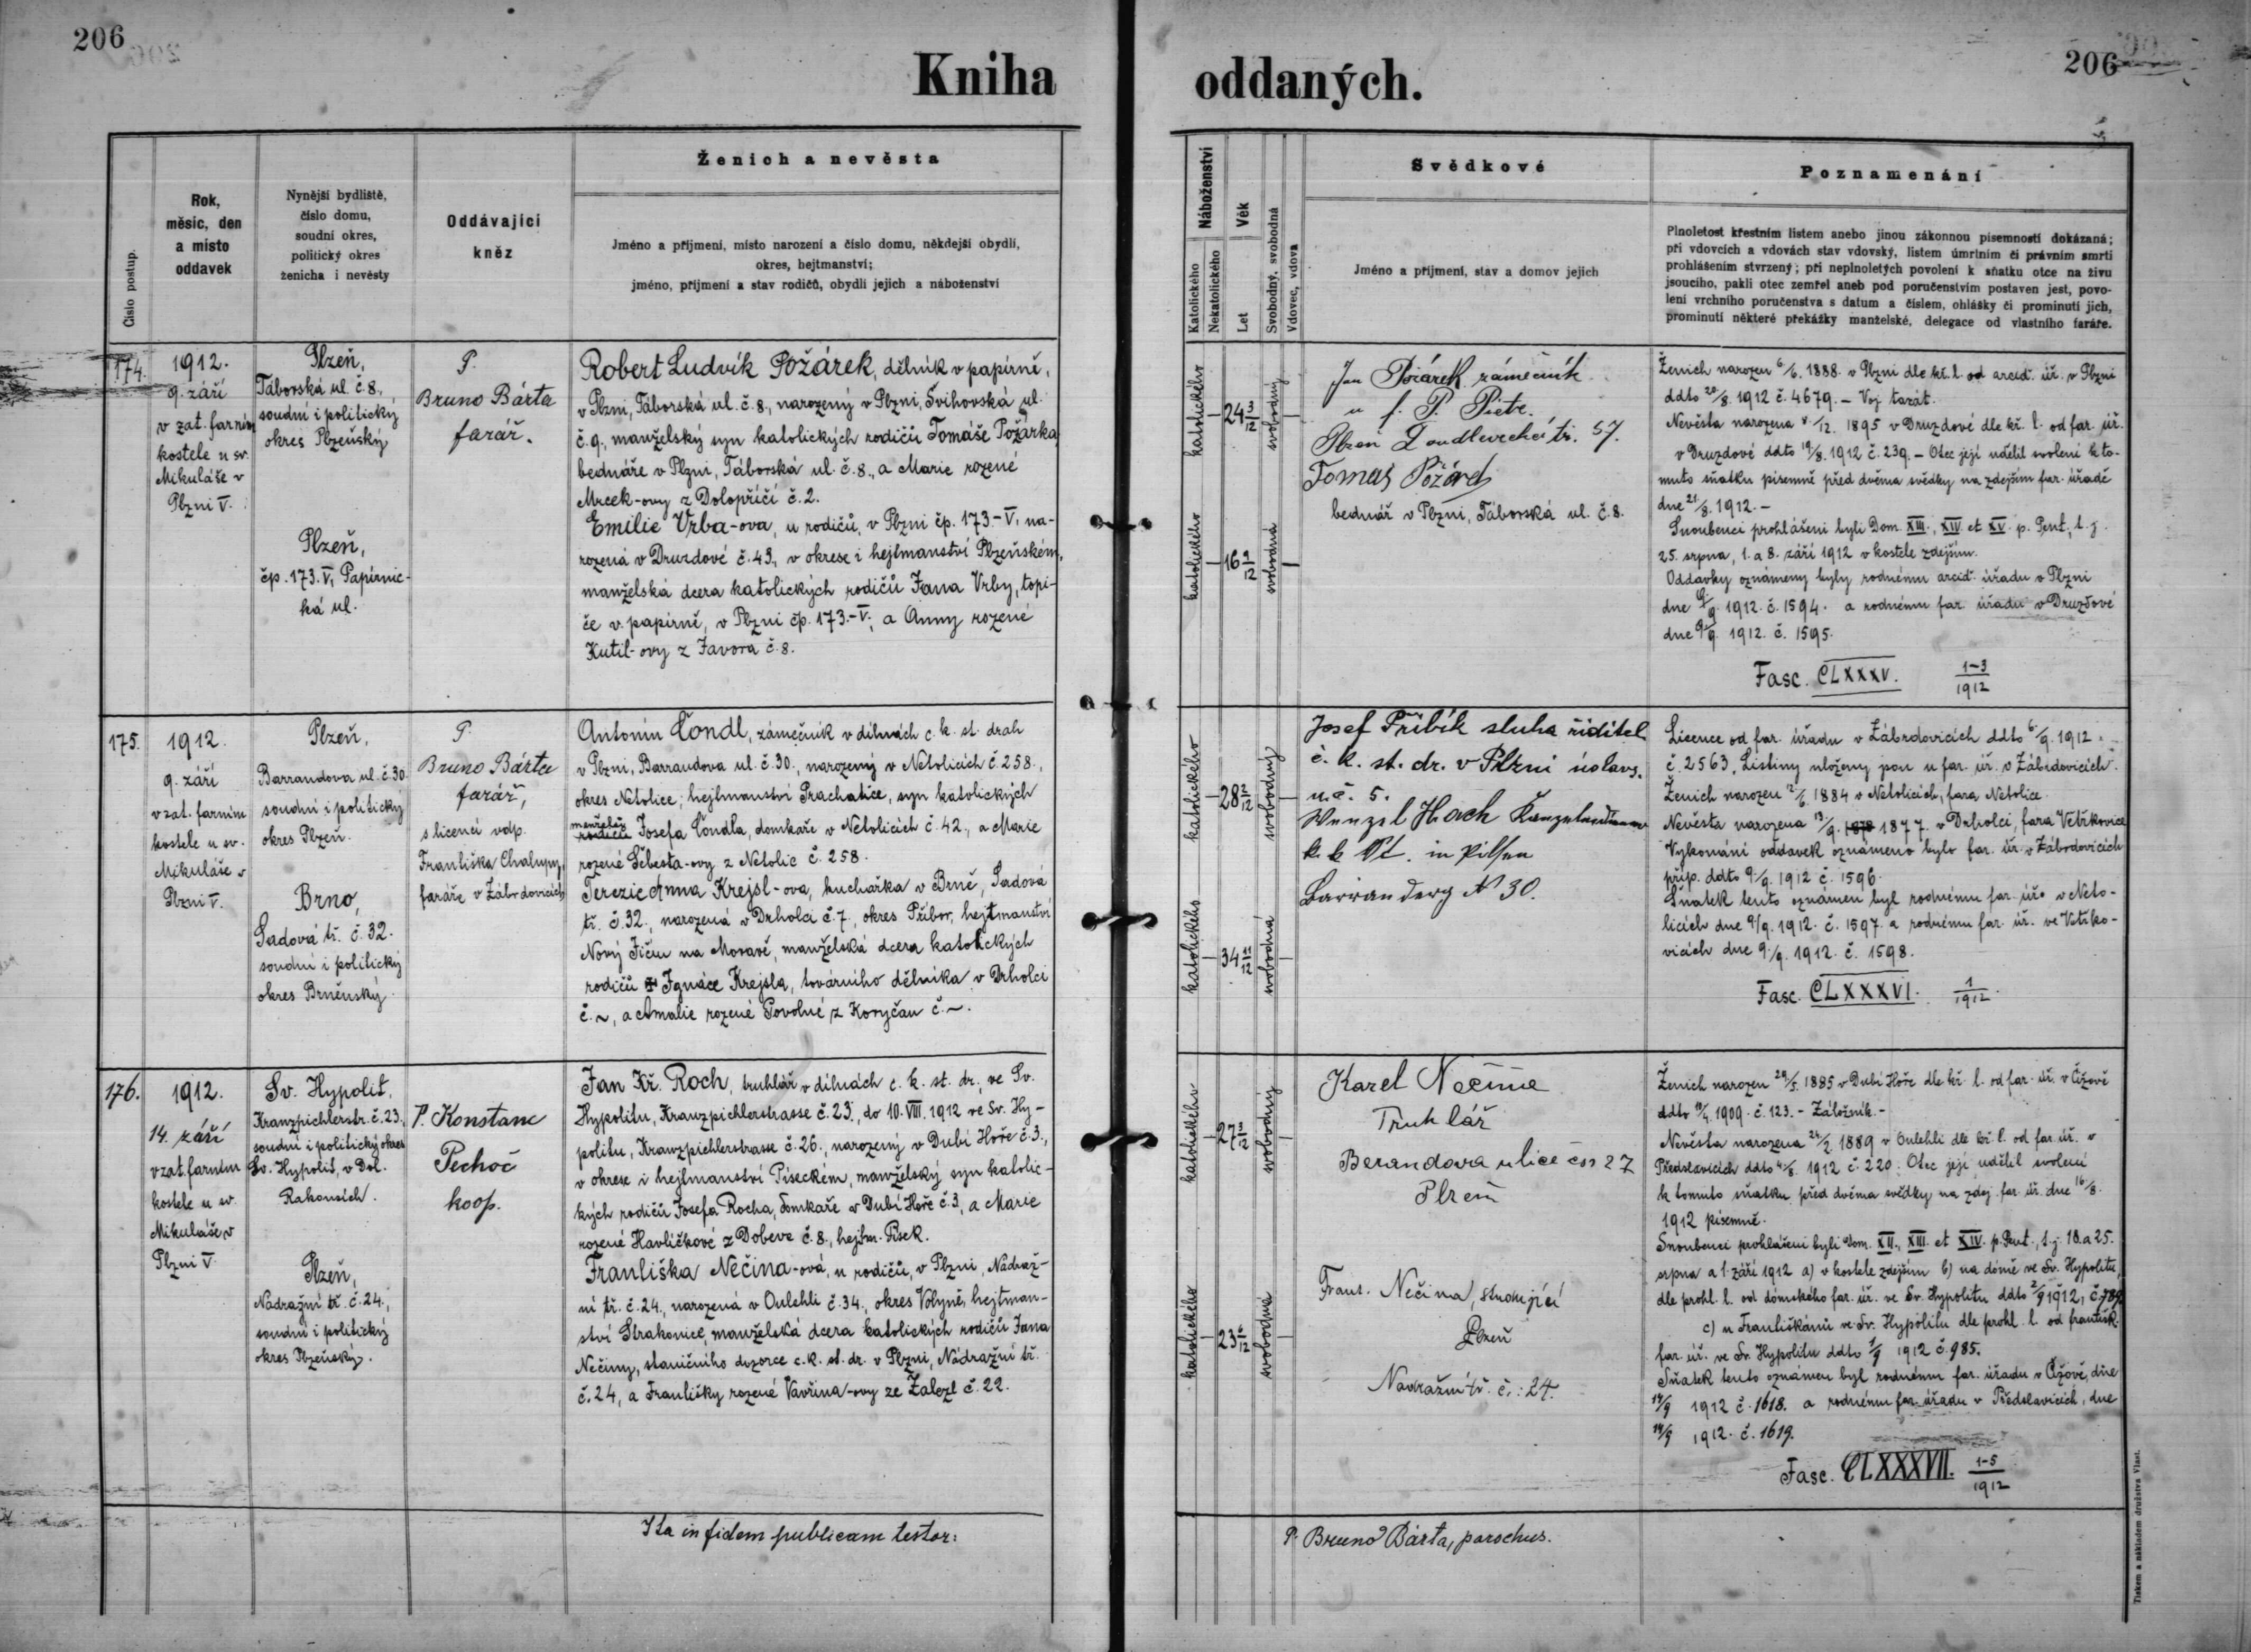 206
Kniha
Číslo postup.
Rok,
měsíc, den
a místo
oddavek
Nynější bydliště,
číslo domu,
soudní okres,
politický okres
ženicha i nevěsty
Oddávající
kněz
Ženich a nevěsta
Jméno a příjmení, místo narození a číslo domu, někdejší obydlí,
okres, hejtmanství;
jméno, příjmení a stav rodičů, obydlí jejich a náboženství
174.
1912.
9. září
v zat. farním
kostele u sv.
Mikuláše v
Plzni V.
Plzeň,
Táborská ul. č. 8.,
soudní i politický
okres Plzeňský
Plzeň,
čp. 173. V, Papírnic-
ká ul.
P.
Bruno Bárta
farář.
Robert Ludvík Požárek, dělník v papírně,
v Plzni, Táborská ul. č. 8., narozený v Plzni, Švihovská ul.
č. 9., manželský syn katolických rodičů Tomáše Požárka,
bednáře v Plzni, Táborská ul. č. 8., a Marie rozené
Mrcek-ovy z Dolopříčí č. 2.
Emilie Vrba-ova, u rodičů, v Plzni čp. 173.-V, na-
rozená v Druzdové č. 43., v okrese i hejtmanství Plzeňském,
manželská dcera katolických rodičů Jana Vrby, topi-
če v papírně, v Plzni čp. 173.-V., a Anny rozené
Kutil-ovy z Javora č. 8.
175.
1912.
9. září
v zat. farním
kostele u sv.
Mikuláše v
Plzni V.
Plzeň,
Barrandova ul. č. 30.
soudní i politický
okres Plzeň.
Brno,
Sadová tř. č. 32.
soudní i politický
okres Brněnský.
P.
Bruno Bárta
farář,
s licencí vdp.
Františka Chalupy,
faráře v Zábrdovicích
Antonín Čondl, zámečník v dílnách c. k. st. drah
v Plzni, Barrandova ul. č. 30., narozený v Netolicích č. 258.,
okres Netolice, hejtmanství Prachatice, syn katolických
manželů
rodičů Josefa Čondla, domkaře v Netolicích č. 42., a Marie
rozené Šebesta-ovy z Netolic č. 258.
Terezie Anna Krejsl-ova, kuchařka v Brně, Sadová
tř. č. 32., narozená v Drholci č. 7., okres Příbor, hejtmanství
Nový Jičín na Moravě, manželská dcera katolických
rodičů Ignáce Krejsla, továrního dělníka v Drholci
č. ~, a Amalie rozené Povolné z Koryčan č. ~.
176.
1912.
14. září
v zat. farním
kostele u sv.
Mikuláše v
Plzni V.
Sv. Hypolit,
Kranzpichlerstr. č. 23.,
soudní i politický okres
Sv. Hypolit, v Dol.
Rakousích.
Plzeň,
Nádražní tř. č. 24.,
soudní i politický
okres Plzeňský.
P. Konstanc
Pechoč
koop.
Jan Kř. Roch, truhlář v dílnách c. k. st. dr., ve Sv.
Hypolitu, Kranzpichlerstrasse č. 23., do 10. VIII. 1912 ve Sv. Hy-
politu, Kranzpichlerstrasse č. 26., narozený v Dubí Hoře č. 3.,
v okrese i hejtmanství Píseckém, manželský syn katolic-
kých rodičů Josefa Rocha, domkaře v Dubí Hoře č. 3, a Marie
rozené Havlíčkové z Dobeve č. 8., hejtm. Písek.
Františka Nečina-ová, u rodičů, v Plzni, Nádraž-
ní tř. č. 24., narozená v Oulehli č. 34., okres Volyně, hejtman-
ství Strakonice, manželská dcera katolických rodičů Jana
Nečiny, staničního dozorce c. k. st. dr. v Plzni, Nádražní tř.
č. 24, a Františky rozené Vavřina-ovy ze Žalezl č. 22.
Ita in fidem publicam testor:
206
oddaných.
Náboženství
Katolického
Nekatolického
Věk
Let
Svobodný, svobodná
Vdovec, vdova
Svědkové
Jméno a příjmení, stav a domov jejich
Poznamenání
Plnoletost křestním listem anebo jinou zákonnou písemností dokázaná;
při vdovcích a vdovách stav vdovský, listem úmrtním či právním smrti
prohlášením stvrzený; při neplnoletých povolení k sňatku otce na živu
jsoucího, pakli otec zemřel aneb pod poručenstvím postaven jest, povo-
lení vrchního poručenstva s datum a číslem, ohlášky či prominutí jich,
prominutí některé překážky manželské, delegace od vlastního faráře.
katolického
24 3/12
svobodný
katolického
16 9/12
svobodná
Jan Požárek zámečník
u f. P. Pietr.
Plzeň tř. 57.
Tomas Požárek
bednář v Plzni, Táborská ul. č. 8.
Ženich narozen 6/6. 1888. v Plzni dle kř. l. od arcid. úř. v Plzni
ddto 20/8. 1912 č. 4679. - Voj. taxát.
Nevěsta narozena 8./12. 1895 v Druzdové dle kř. l. od far. úř.
v Druzdové ddto 19/8. 1912 č. 239. - Otec její udělil svolení k to-
muto sňatku písemně před dvěma svědky na zdejším far. úřadě
dne 21/8. 1912. -
Snoubenci prohlášeni byli Dom. XIII., XIV. et XV. p. Pent., t. j.
25. srpna, 1. a 8. září 1912 v kostele zdejším.
Oddavky oznámeny byly rodnému arcid. úřadu v Plzni
dne 9/9. 1912. č. 1594. a rodnému far. úřadu v Druzdové
dne 9/9. 1912. č. 1595.
Fasc. CLXXXV. 1-3/1912
katolického
28 2/12
svobodný
katolického
34 11/12
svobodná
Josef Přibík sluha ředitel.
c. k. st. dr. v Plzni úslavs.
u. č. 5.
Wenzel Hach
k. k. St. in Pilsen
Barrandeg N 30.
Licence od far. úřadu v Zábrdovicích ddto 6/9. 1912.
č. 2563. Listiny uloženy jsou u far. úř. v Zábrdovicích.
Ženich narozen 12/6. 1884 v Netolicích, fara Netolice.
Nevěsta narozena 13/9. 1878 1877. v Drholci, fara Větřkovice
Vykonání oddavek oznámeno bylo far. úř. v Zábrdovicích
příp. ddto 9./9. 1912 č. 1596.
Sňatek tento oznámen byl rodnému far. úř. v Neto-
licích dne 9/9. 1912. č. 1597. a rodnému far. úř. ve Větřko-
vicích dne 9./9. 1912. č. 1598.
Fasc. CLXXXVI. 1/1912.
katolického
27 3/12
svobodný
katolického
23 6/12
svobodná
Karel Nečina
Truhlář
Berandova ulice čís 27
Plzeň
Frant. Nečina, studující
Plzeň
Nádražní tř. č.: 24.
Ženich narozen 29/5. 1885 v Dubí Hoře dle kř. l. od far. úř. v Čížově
ddto 19/4. 1909. č. 123. - Záložník. -
Nevěsta narozena 24/2. 1889 v Oulehli dle kř. l. od far. úř. v
Předslavicích ddto 4/8. 1912 č. 220. Otec její udělil svolení
k tomuto sňatku před dvěma svědky na zdej. far. úř. dne 16/8.
1912 písemně.
Snoubenci prohlášeni byli Dom. XII., XIII. et XIV. p. Pent., t. j. 18. a 25.
srpna a 1. září 1912 a) v kostele zdejším b) na dómě ve Sv. Hypolitu,
dle prohl. l. od dómského far. úř. ve Sv. Hypolitu ddto 2/9 1912, č. 789
c) u Františkánů ve Sv. Hypolitu dle prohl. l. od františk.
far. úř. ve Sv. Hypolitu ddto 1/9 1912 č. 985.
Sňatek tento oznámen byl rodnému far. úřadu v Čížově, dne
14/9 1912 č. 1618. a rodnému far. úřadu v Předslavicích, dne
14/9 1912. č. 1619.
Fasc. CLXXXVII. 1-5/1912
P. Bruno Bárta, parochus.
Tiskem a nákladem družstva Vlast.